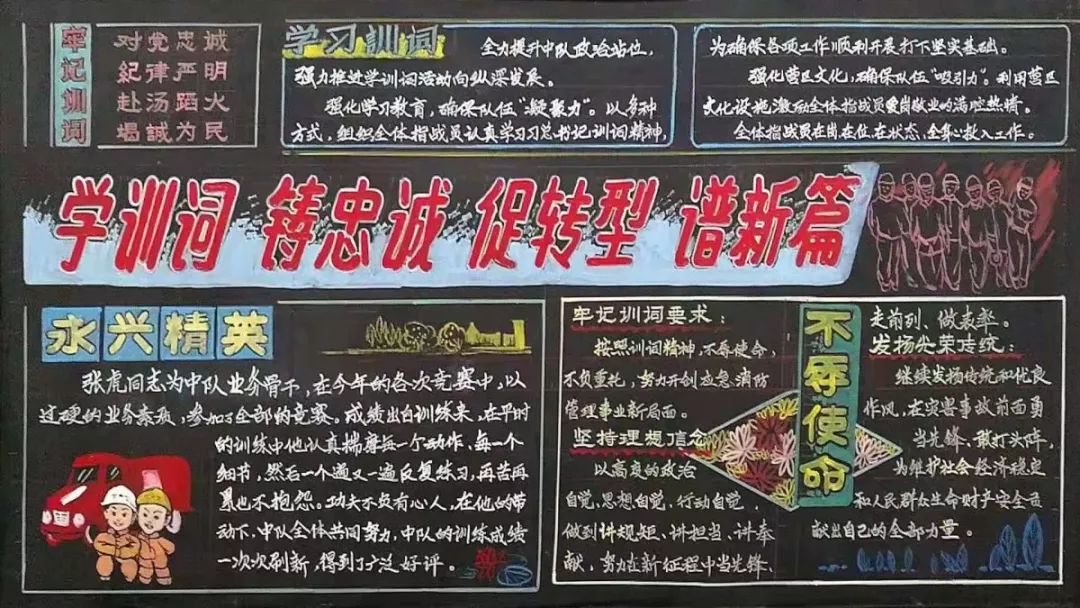 牢记训词
对党忠诚
纪律严明
赴汤蹈火
竭誠为民
学习訓词
全力提升中队政治站位,
强力推进学训词活动向纵深发展。
强化学习教育,确保队伍“凝聚力”。以多种
方式,组织全体指战员认真学习习总书记训词精神,
为确保各项工作顺利开展打下坚实基础。
强化营区文化,确保队伍“吸引力”。利用营区
文化设施激励全体指战员爱岗敬业的满腔热情。
全体指战员在岗在位、在状态、全身心投入工作。
学训词 铸忠诚 促转型 谱新篇
永兴精英
张虎同志为中队业务骨干,在今年的各次竞赛中,以
过硬的业务素质,参加了全部的竞赛。成绩出自训练来,在平时
的训练中他认真揣摩每一个动作、每一个
细节,然后一个遍又一遍反复练习,再苦再
累也不抱怨。功夫不负有心人,在他的带
动下,中队全体共同努力,中队的训练成绩
一次次刷新,得到了广泛好评。
牢记训词要求:
按照训词精神,不辱使命,
不负重托,努力开创应急消防
管理事业新局面。
坚持理想信念
以高度的政治
自觉、思想自觉、行动自觉,
做到讲规矩、讲担当、讲奉
献,努力在新征程中当先锋、
不辱使命
走前列、做表率。
发扬光荣传统:
继续发扬传统和优良
作风,在灾害事故前面勇
当先锋、敢打头阵,
为维护社会经济稳定
和人民群众生命财产安全而
献出自己的全部力量。